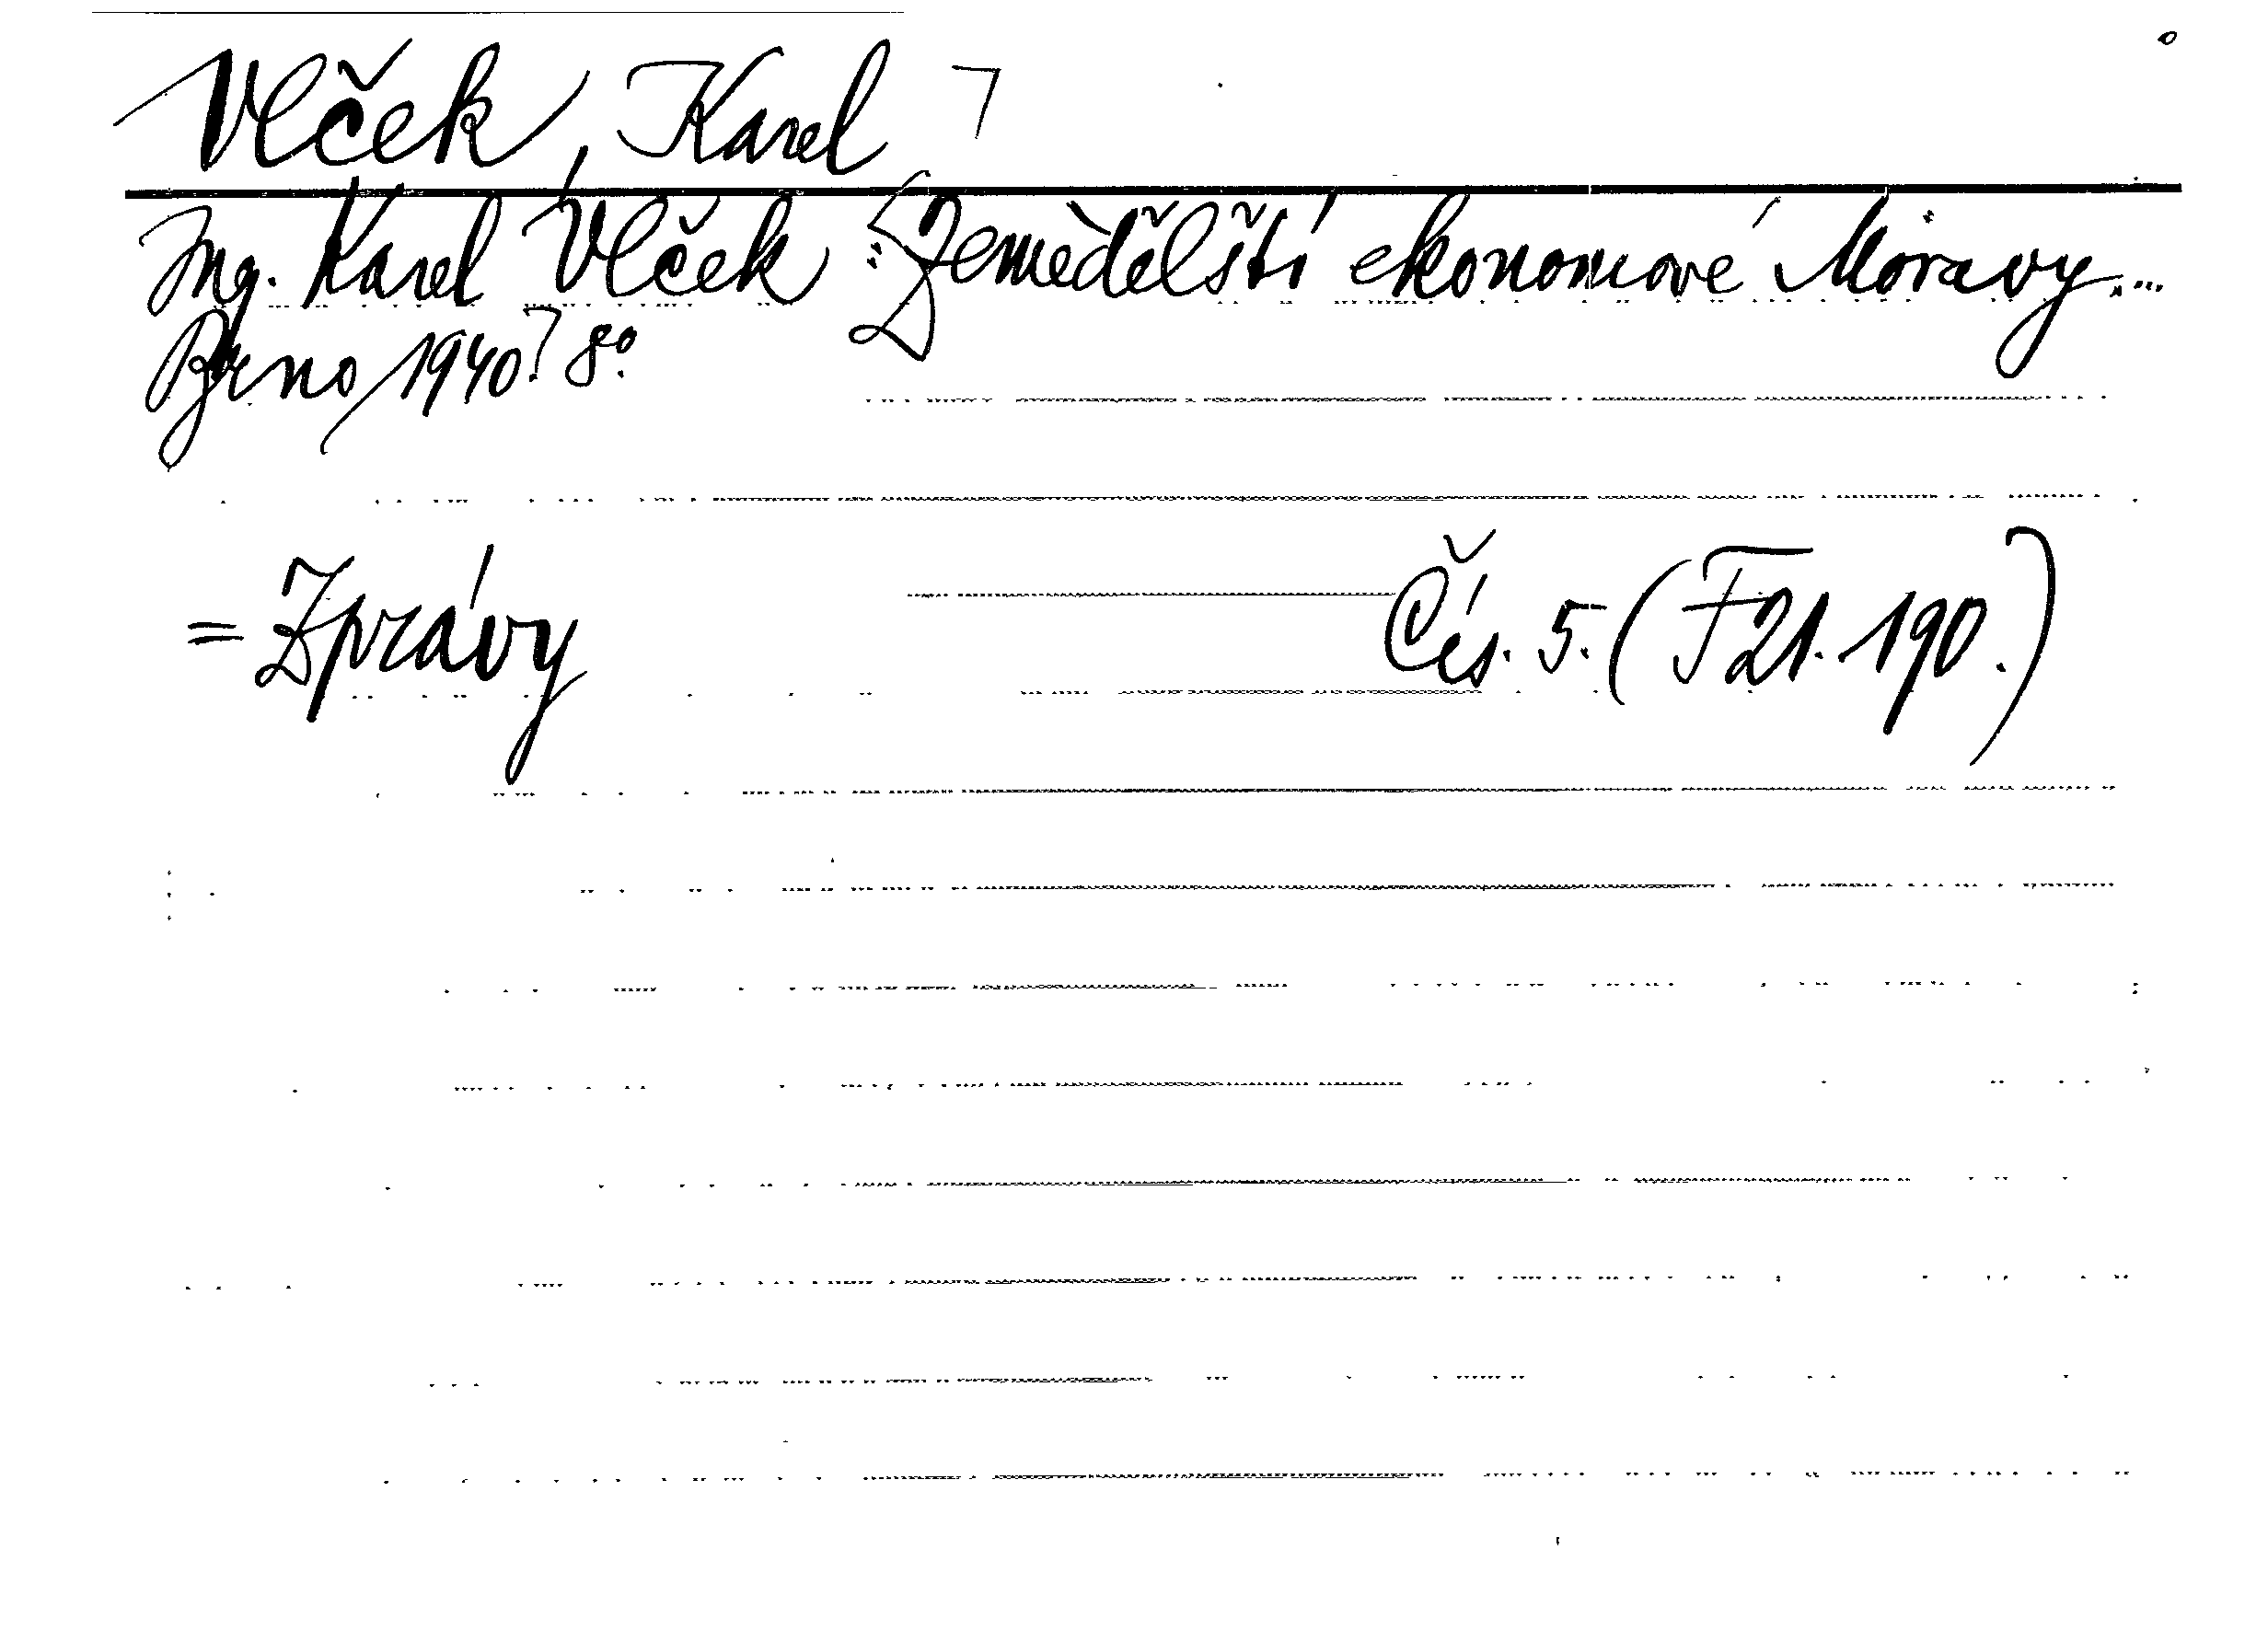 Vlček, Karel
Ing. Karel Vlček: Zemědělští ekonomové Moravy...
Brno 1940. 8°.
= Zprávy Čís. 5. (F21.190.)